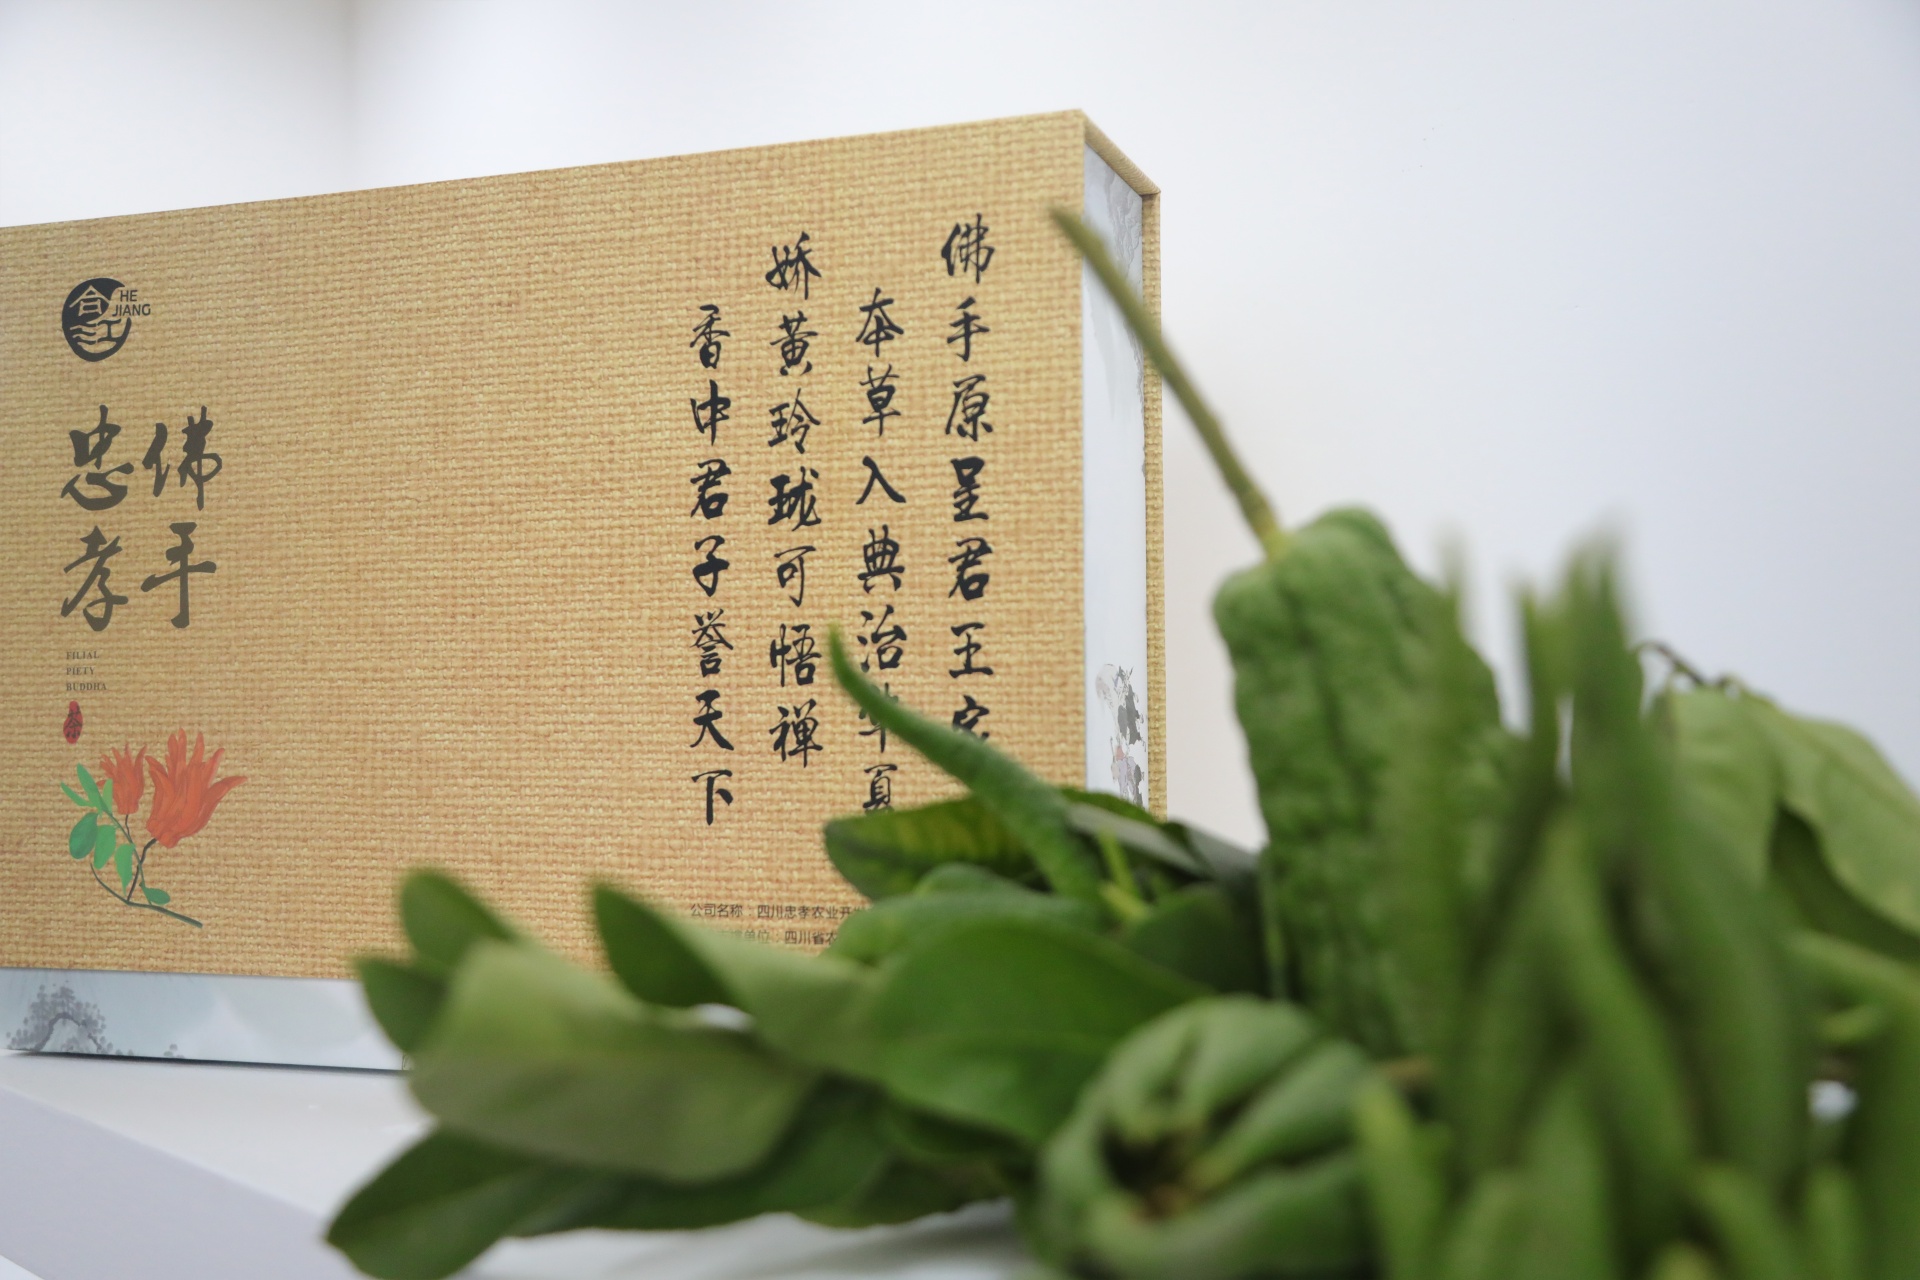 佛手原呈君王家
本草入典治
娇黄玲珑可悟禅
香中君子誉天下
合江
HE
JIANG
佛手
忠孝
FILIAL
PIETY
BUDDHA
茶
公司名称：四川忠孝农业开
单位：四川省农